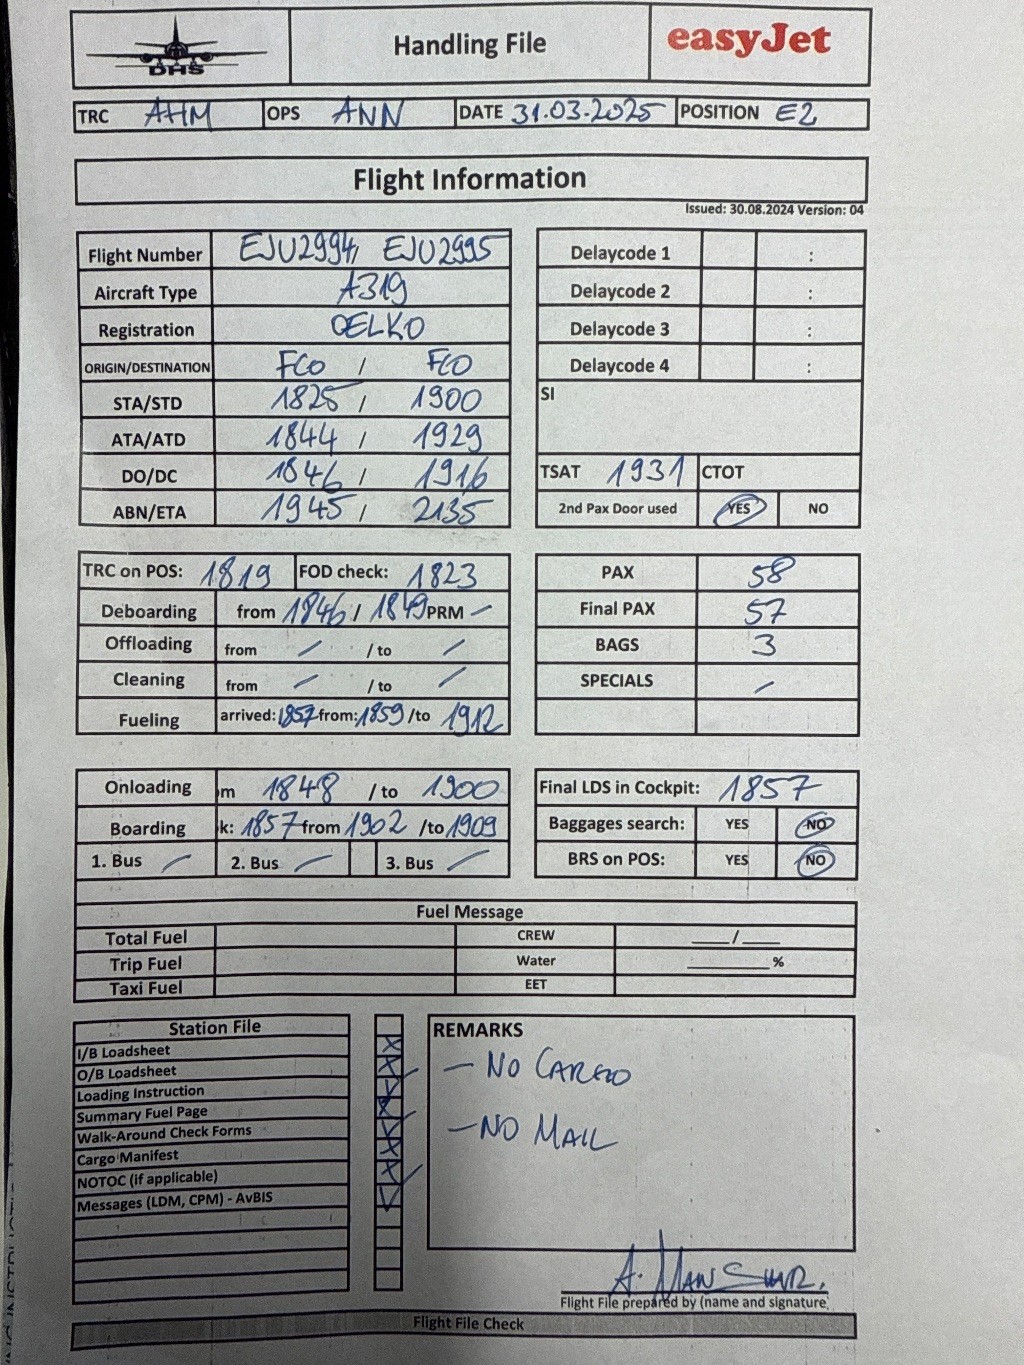 DHS Handling File easyJet
TRC AHM OPS ANN DATE 31.03.2025 POSITION E2
Flight Information
Issued: 30.08.2024 Version: 04
Flight Number EJU2994/ EJU2995
Aircraft Type A319
Registration OELKO
ORIGIN/DESTINATION FCO / FCO
STA/STD 1825 / 1900
ATA/ATD 1844 / 1929
DO/DC 1846 / 1916
ABN/ETA 1945 / 2135
Delaycode 1 :
Delaycode 2 :
Delaycode 3 :
Delaycode 4 :
SI
TSAT 1931 CTOT
2nd Pax Door used YES NO
TRC on POS: 1819 FOD check: 1823
Deboarding from 1846 / 1849 PRM –
Offloading from – / to –
Cleaning from – / to –
Fueling arrived: 1857 from: 1859 /to 1912
PAX 58
Final PAX 57
BAGS 3
SPECIALS –
Onloading m 1848 / to 1900
Boarding k: 1857 from 1902 /to 1909
1. Bus – 2. Bus – 3. Bus –
Final LDS in Cockpit: 1857
Baggages search: YES NO
BRS on POS: YES NO
Fuel Message
Total Fuel CREW ____/____
Trip Fuel Water ________%
Taxi Fuel EET
Station File
I/B Loadsheet
O/B Loadsheet
Loading Instruction
Summary Fuel Page
Walk-Around Check Forms
Cargo Manifest
NOTOC (if applicable)
Messages (LDM, CPM) - AvBIS
REMARKS
– NO CARGO
– NO MAIL
A. MANSOUR.
Flight File prepared by (name and signature
Flight File Check